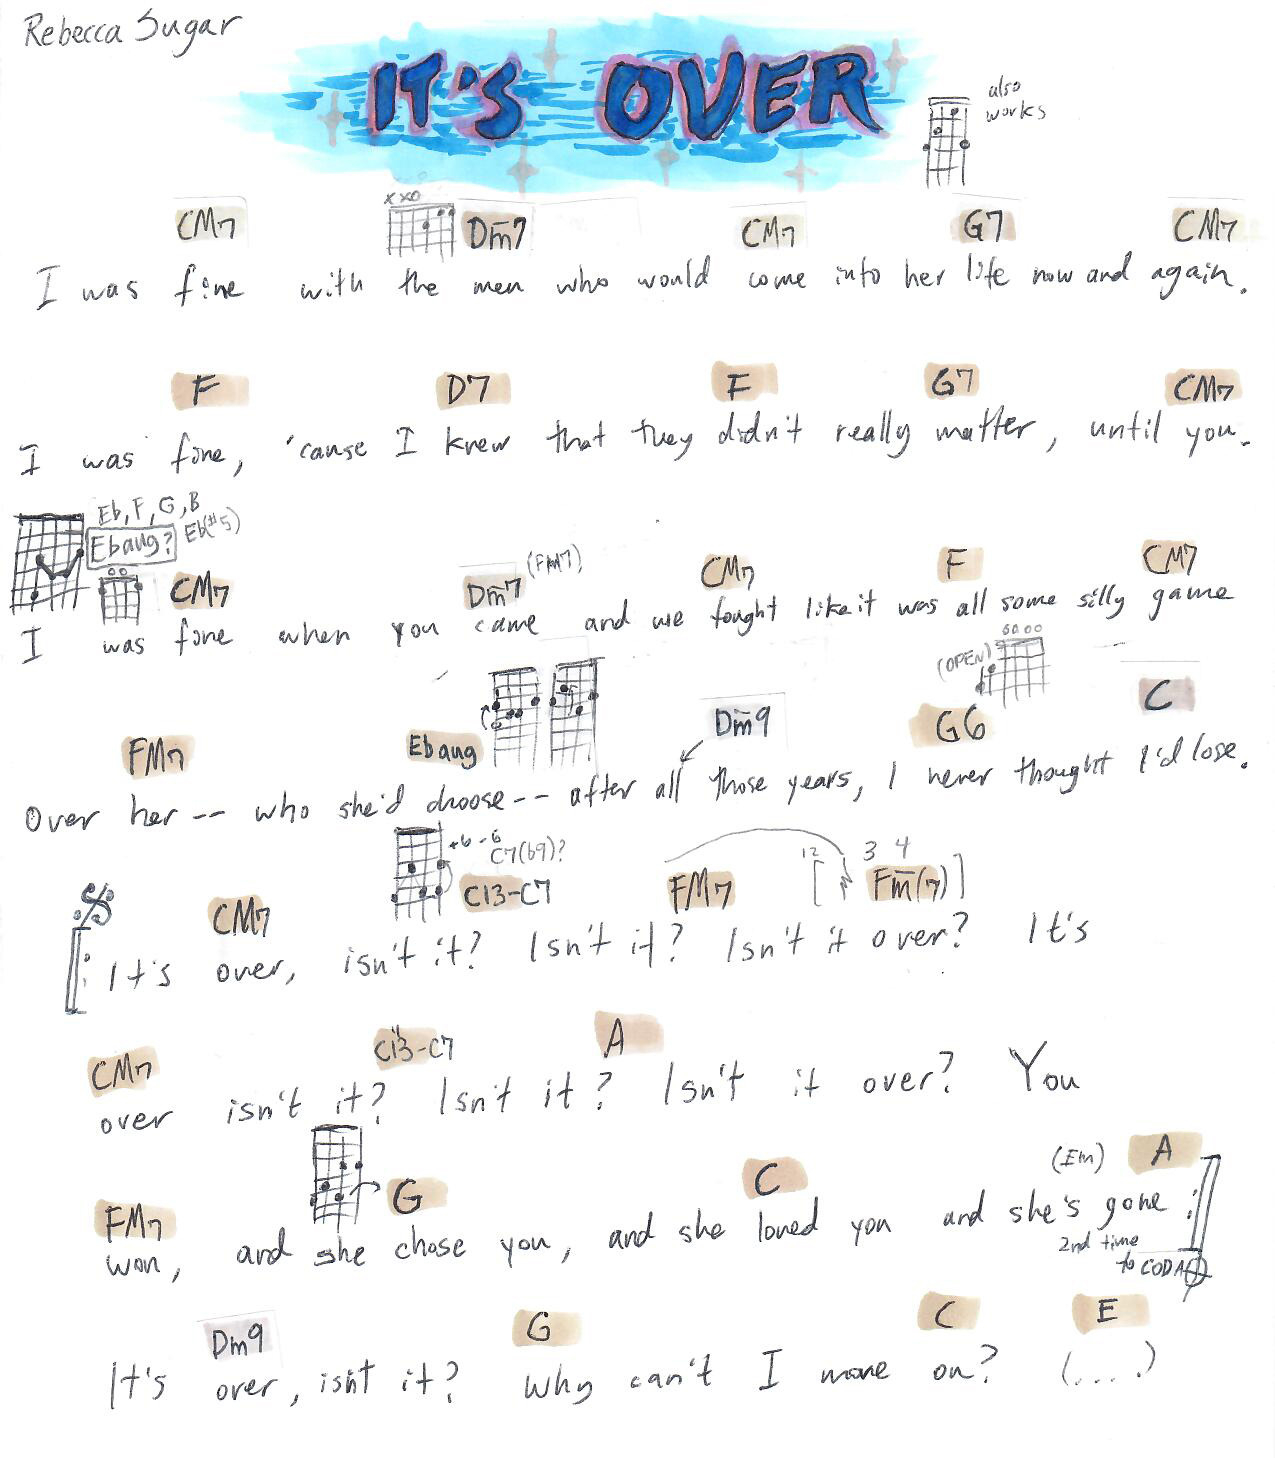 Rebecca Sugar
IT'S OVER
also
works
xxo
CM7 Dm7 CM7 G7 CM7
I was fine with the men who would come into her life now and again.
F D7 F G7 CM7
I was fine, 'cause I knew that they didn't really matter, until you.
Eb, F, G, B
Ebaug? Eb(#5)
oo
CM7 Dm7 (FM7) CM7 F CM7
I was fine when you came and we fought like it was all some silly game
(OPEN) oooo
FM7 Ebaug Dm9 G6 C
Over her -- who she'd choose -- after all those years, I never thought I'd lose.
C7(b9)? 12 3 4
CM7 C13-C7 FM7 [ Fm(7) ]
It's over, isn't it? Isn't it? Isn't it over? It's
CM7 C13-C7 A
over isn't it? Isn't it? Isn't it over? You
FM7 G C (Em) A
won, and she chose you, and she loved you and she's gone
2nd time
to CODA
Dm9 G C E
It's over, isn't it? Why can't I move on? (....)